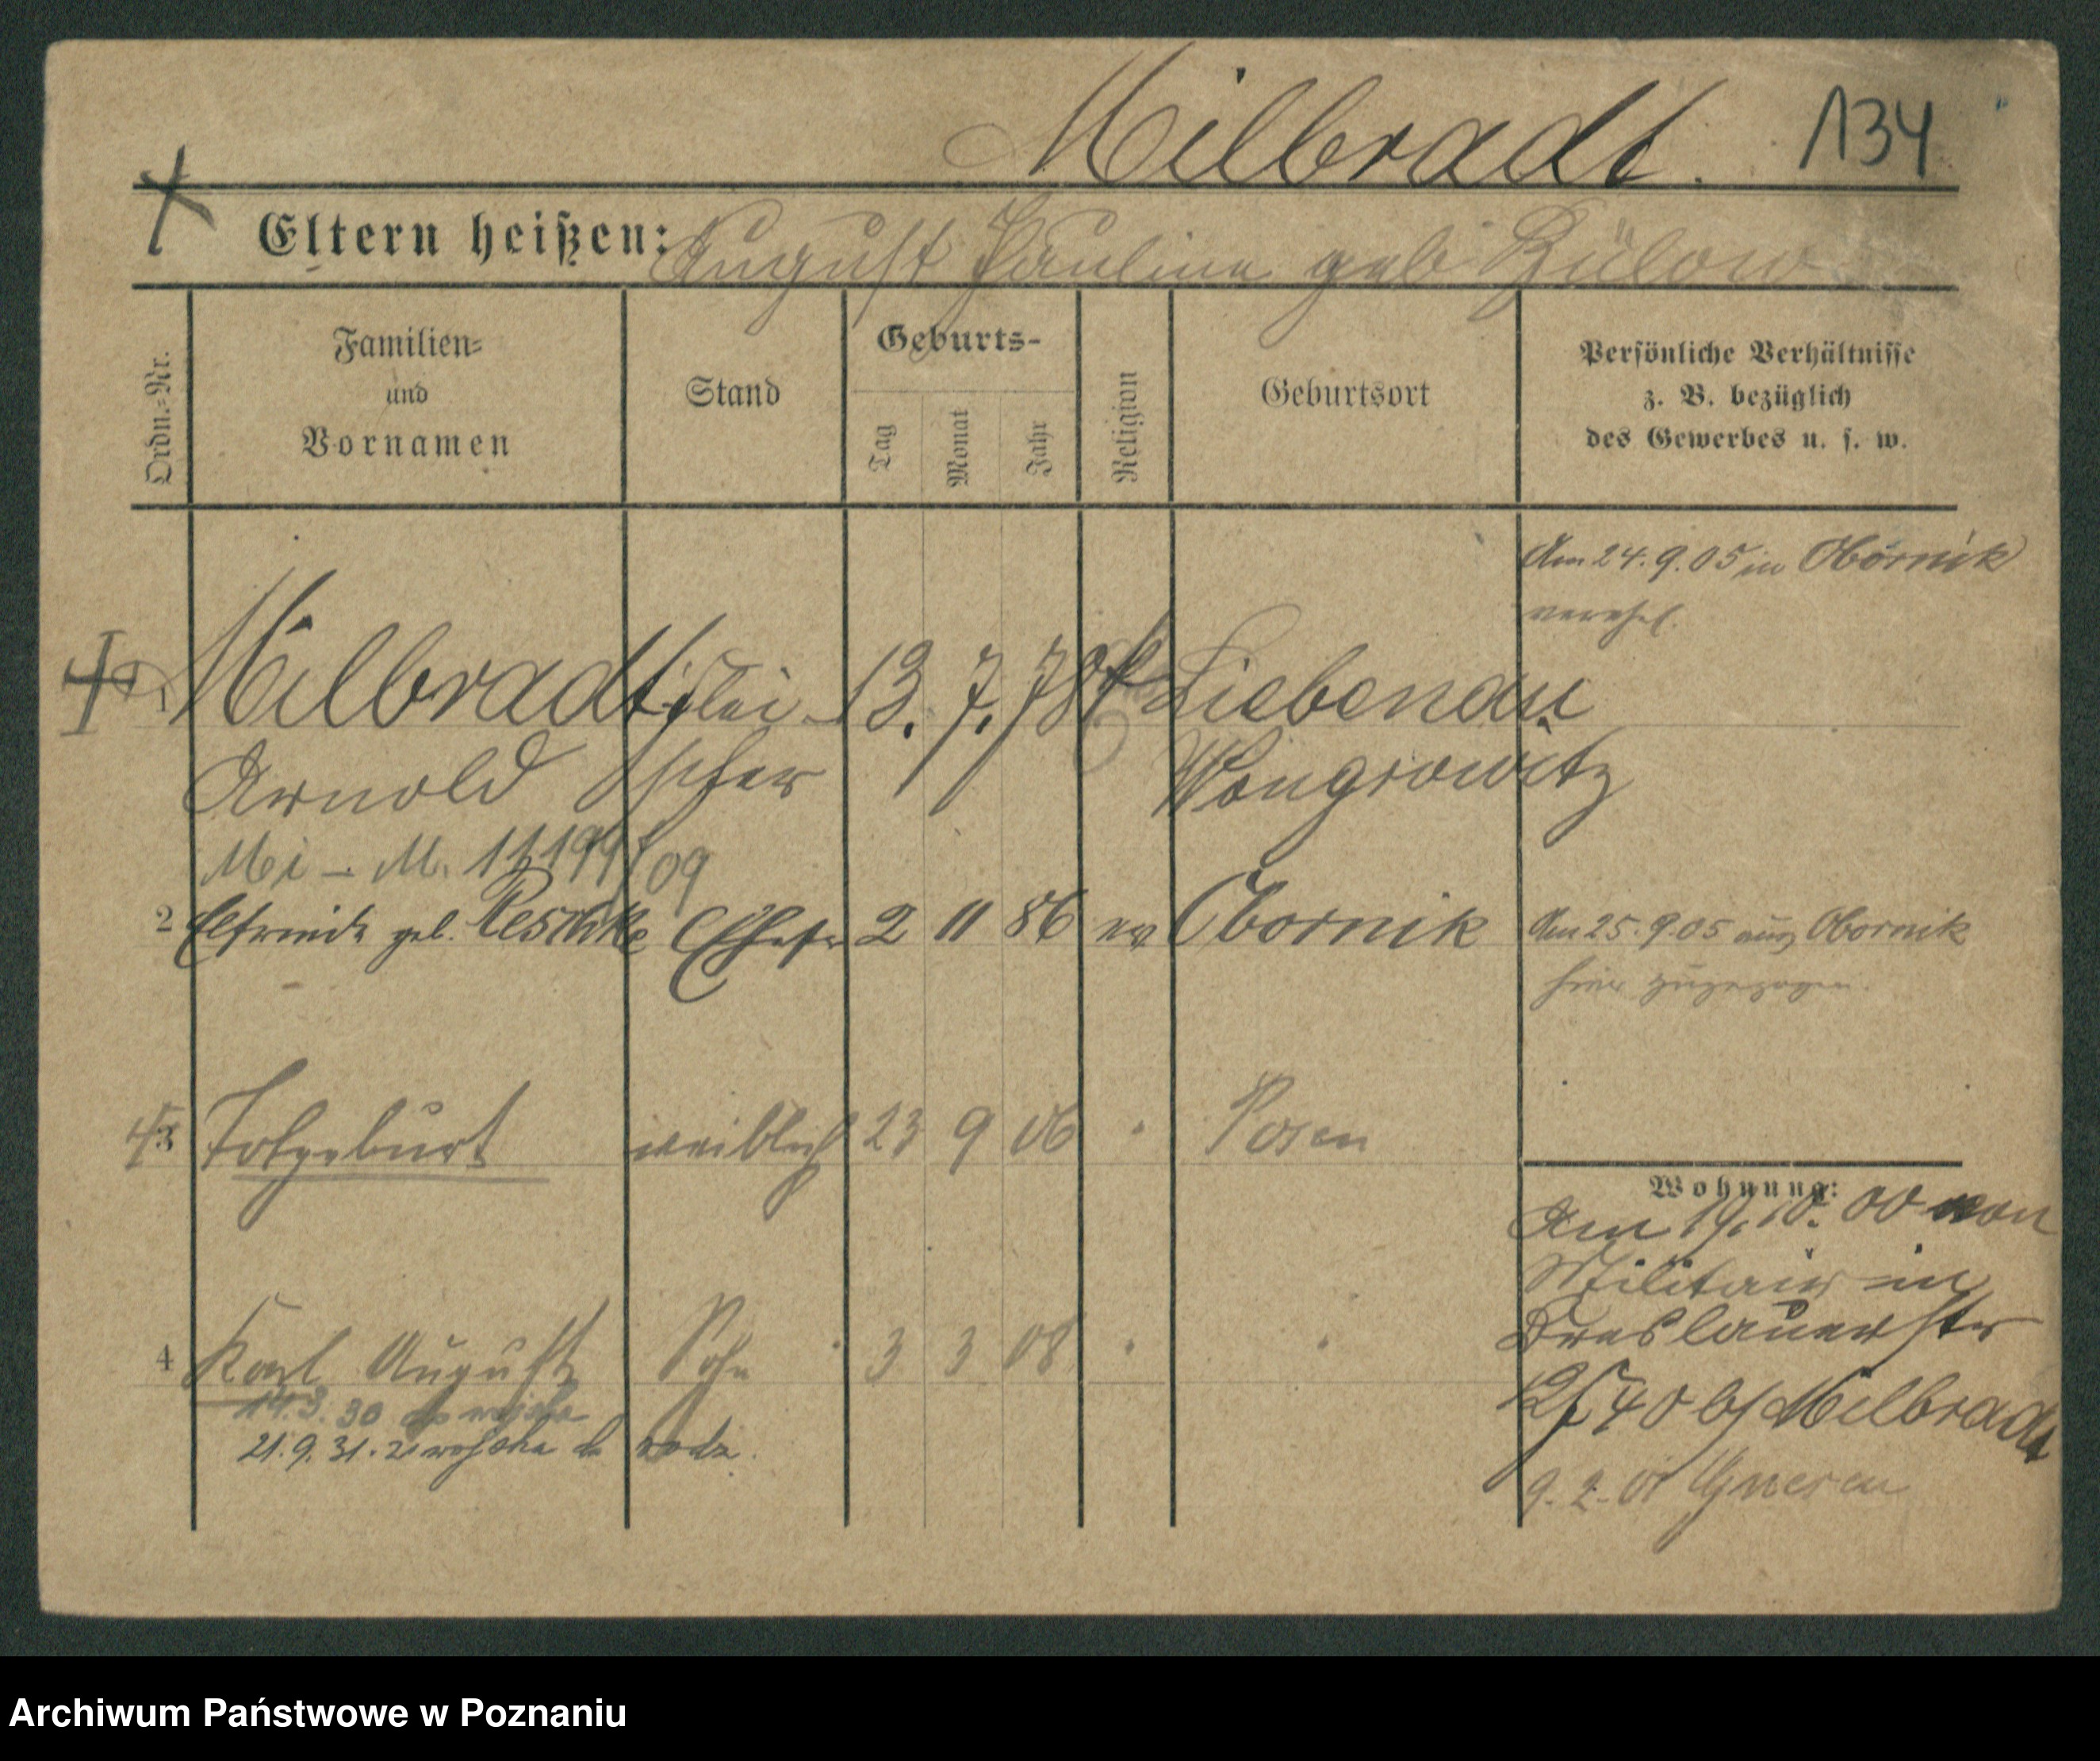 Milbradt. 134
Eltern heißen: August Pauline geb Bülow
Ordn.=Nr.
Familien=
und
Vornamen
Stand
Geburts-
Tag
Monat
Jahr
Religion
Geburtsort
Persönliche Verhältnisse
z. B. bezüglich
des Gewerbes u. s. w.
Am 24.9.05 in Obornik
verehel.
1 Milbradt Flei- 13. 7. 78 Liebenau
Arnold scher Wongrowitz
Mi – M.
2 Elfriede geb. Peschke Ehefr 2 11 86 ev Obornik Am 25.9.05 aus Obornik
hier zugezogen.
3 Totgeburt weiblich 23 9 06 " Posen
Wohnung:
Am 19.10.00 von
Militair in
Breslauerstr
40 b/ Milbradt
4 Karl August Sohn 3 3 08 " "
14.3.30 do wojska
21.9.31. z wojska do rodz.
9.2.01 Gnesen
Archiwum Państwowe w Poznaniu